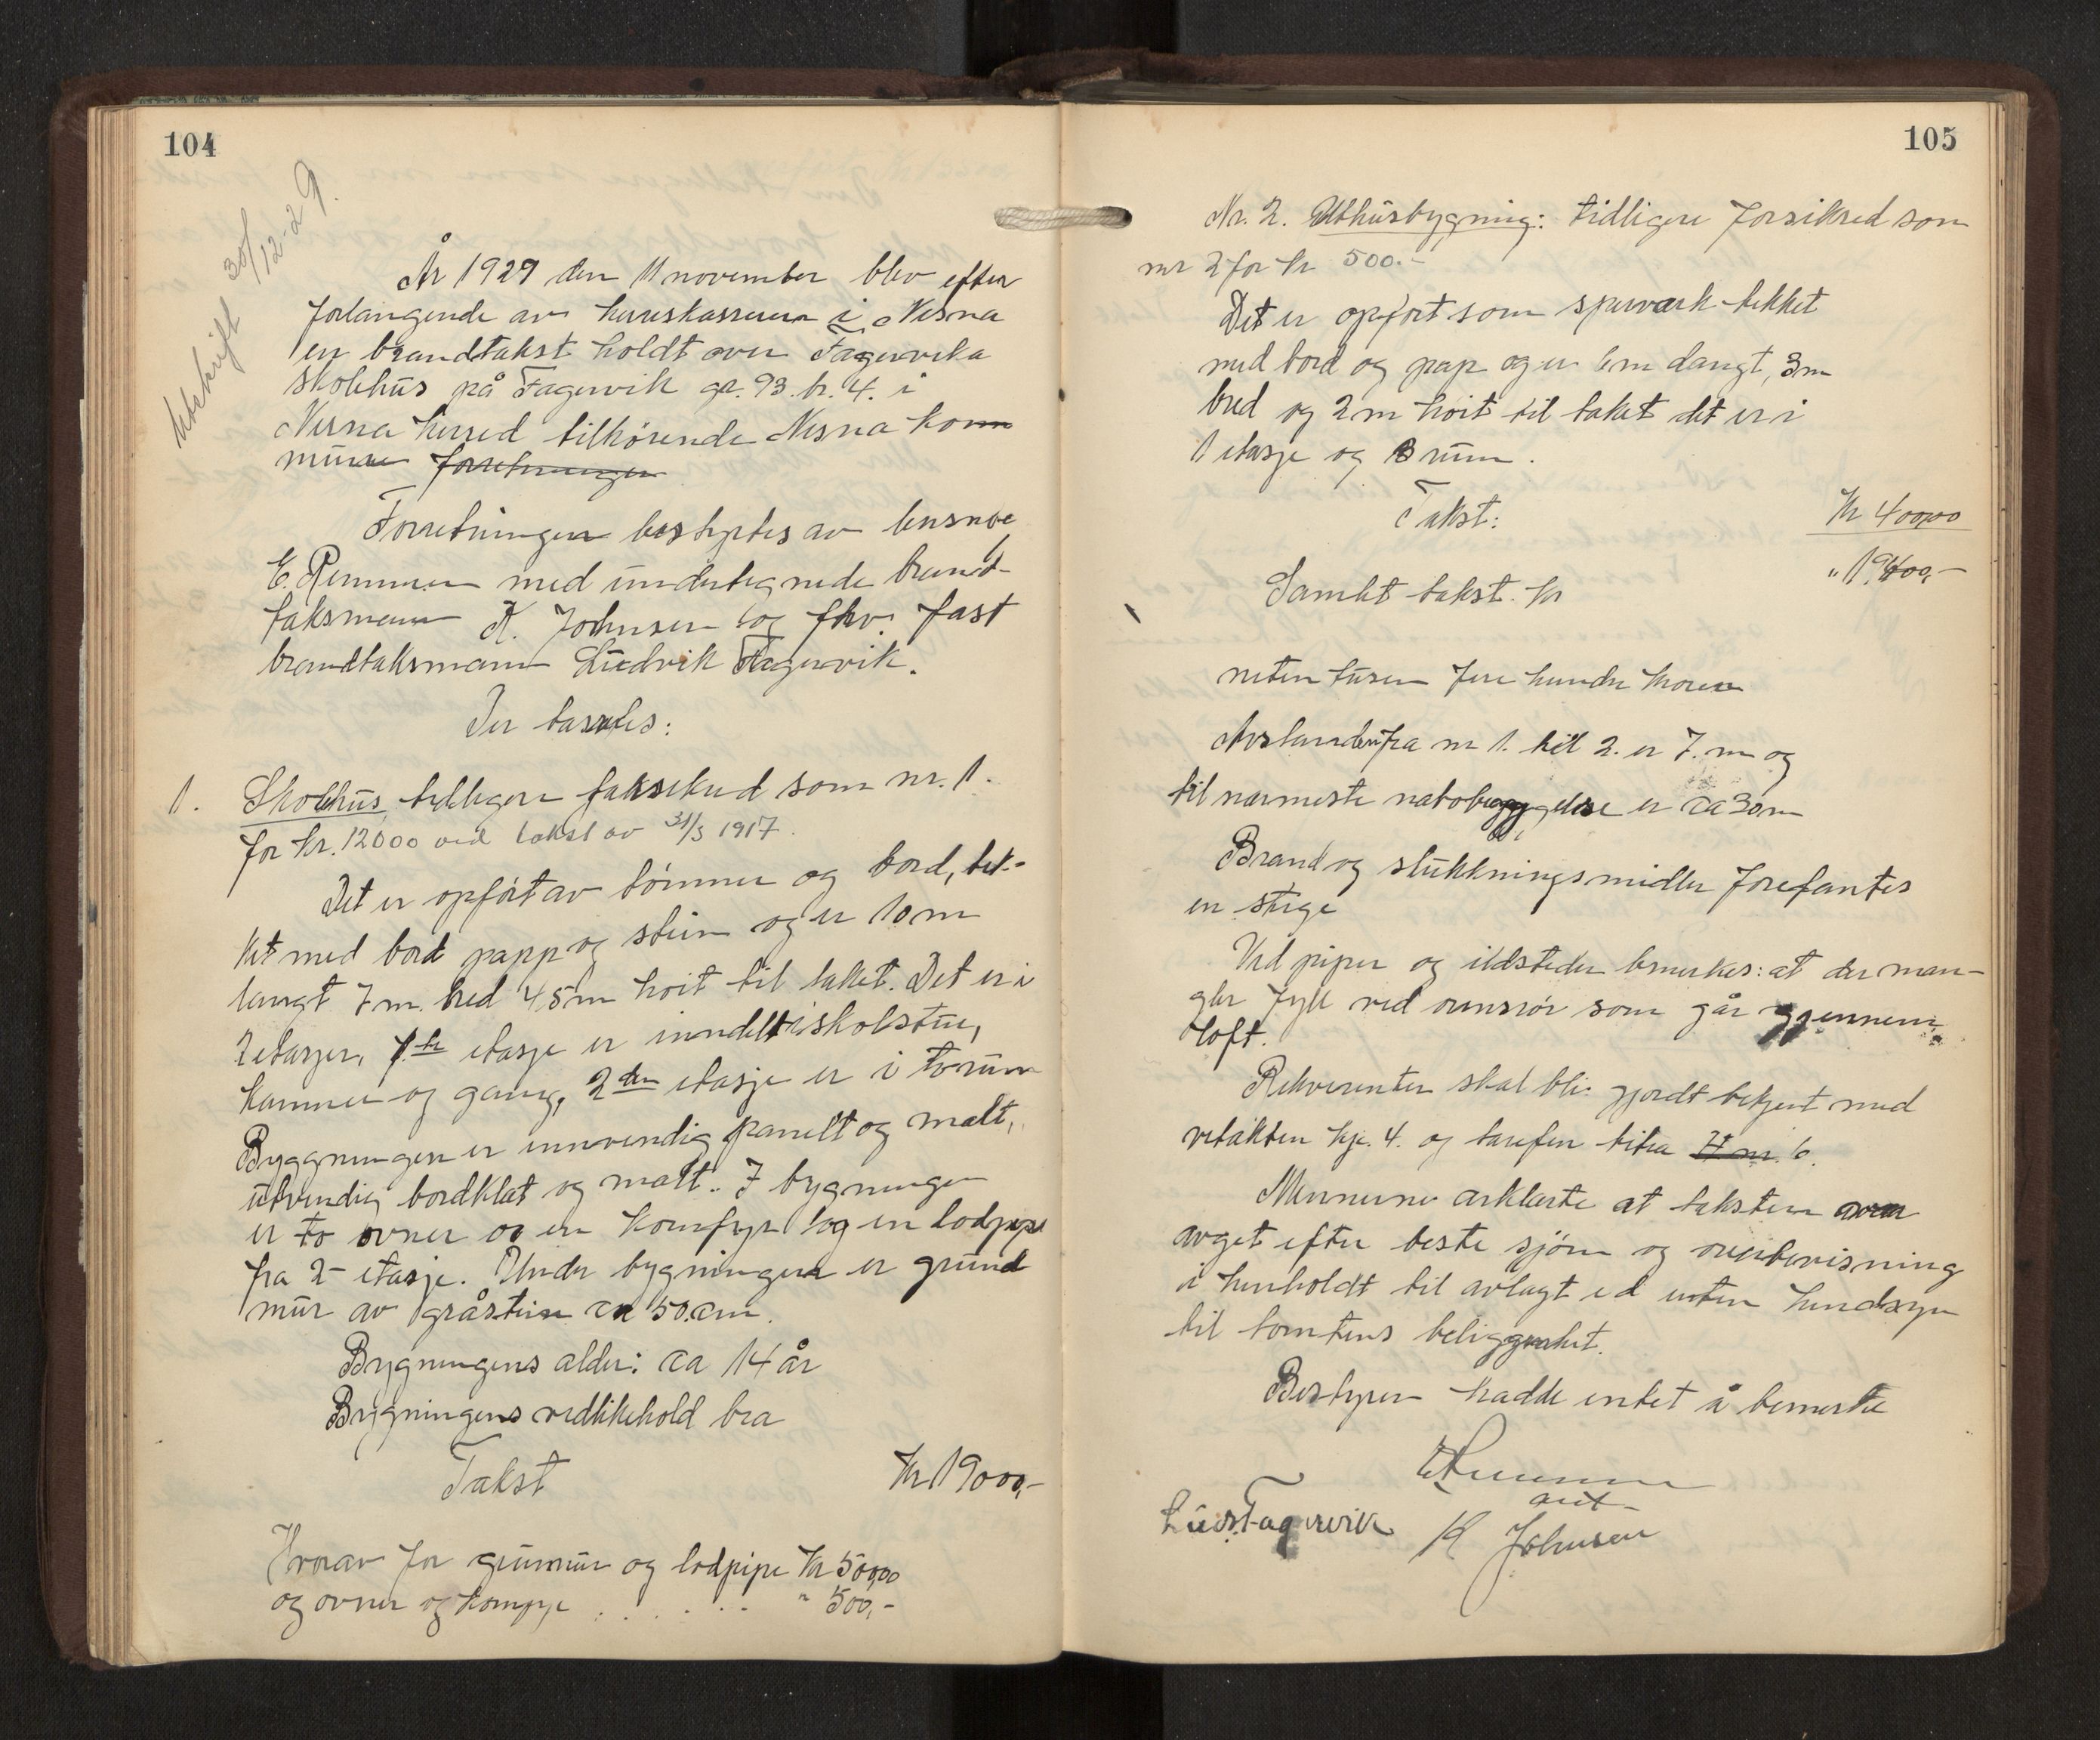 104
Utskrift 30/12-29.
År 1929 den 11 november blev efter
forlangende av herreskasseren i Nesna
en brandtakst holdt over Fagervika
skolehus på Fagervik gr. 93. br. 4. i
Nesna herred tilhørende Nesna kom
mune forretningen
Forretningen bestyrtes av lensm
E. Remmen med undertegnede brand-
taksmenn K. Johnsen og fhv. fast
brandtaksmann Ludvik Fagervik.
Der taxertes:
1. Skolehus tidligere forsikred som nr. 1.
for kr. 12000 ved takst av 31/3 1917.
Det er opført av tømmer og bord, tek-
ket med bord papp og stein og er 10 m
langt 7 m. bred 4,5 m høit til taket. Det er i
2 etasjer, 1ste etasje er inndelt i skolstue,
kammer og gang, 2den etasje er i to rum
Byggningen er innvendig panelt og malt,
utvendig bordklæt og malt. I bygningen
er to ovner og en komfyr og en lodpipe
fra 2 etasje. Under bygningen er grund
mur av gråstein ca 50.cm.
Bygningens alder: ca 14 år
Bygningens vedlikehold bra
Takst Kr 19000,-
Hvorav for grunmur og lodpipe Kr 500,00
og ovner og komfyr . . . . . " 500,-
105
Nr. 2. Uthusbygning: tidligere forsikred som
nr 2 for kr 500.-
Det er opført som sperverk tekket
med bord og pap og er 6 m langt, 3 m
bred og 2 m høit til taket det er i
1 etasje og 3 rum.
Takst: Kr 400,00
Samlet takst. kr " 19400,-
nitten tusen fire hundre kroner
Avstanden fra nr 1. til 2. er 7. m og
til nærmeste nabobebyggelse er ca 30 m
Brand og slukkningsmidler forefantes
en stige
Ved piper og ildsteder bemerkes: at der man-
gler fyll ved ovnsrør som går gjennem
loft.
Rekvirenten skal bli gjordt bekjent med
vetäkten kje. 4. og tarefen titra H nr. 6.
Mennene erklærte at taksten
avget efter beste sjøn og overbevisning
i henholdt til avlagt ed uten hendsyn
til tomtens beliggenhet.
Bestyren hadde intet å bemerke
E Remmen
Ludv. Fagervik K Johnsen